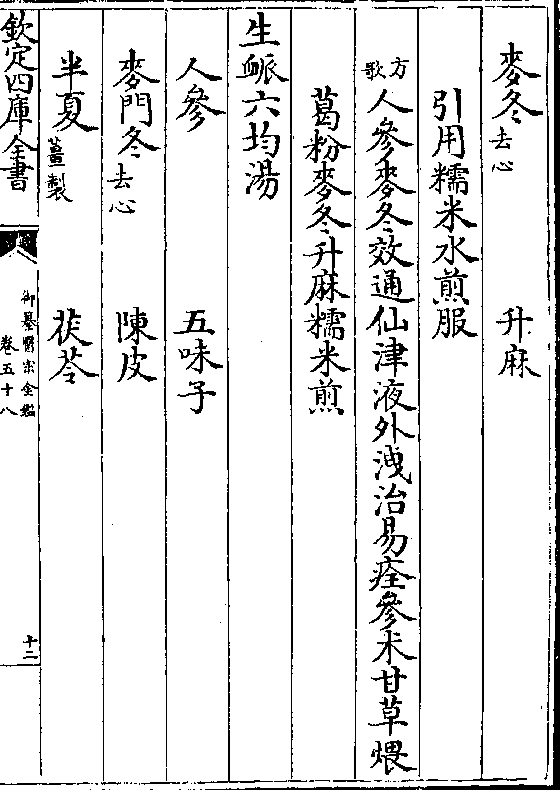 麥冬去心 升麻
引用糯米水煎服
方歌 人參麥冬效通仙津液外洩治易痊參朮甘草煨
葛粉麥冬升麻糯米煎
生脈六均湯
人參 五味子
麥門冬去心 陳皮
半夏薑製 茯苓
欽定四庫全書
御纂醫宗金鑑
卷五十八
十二